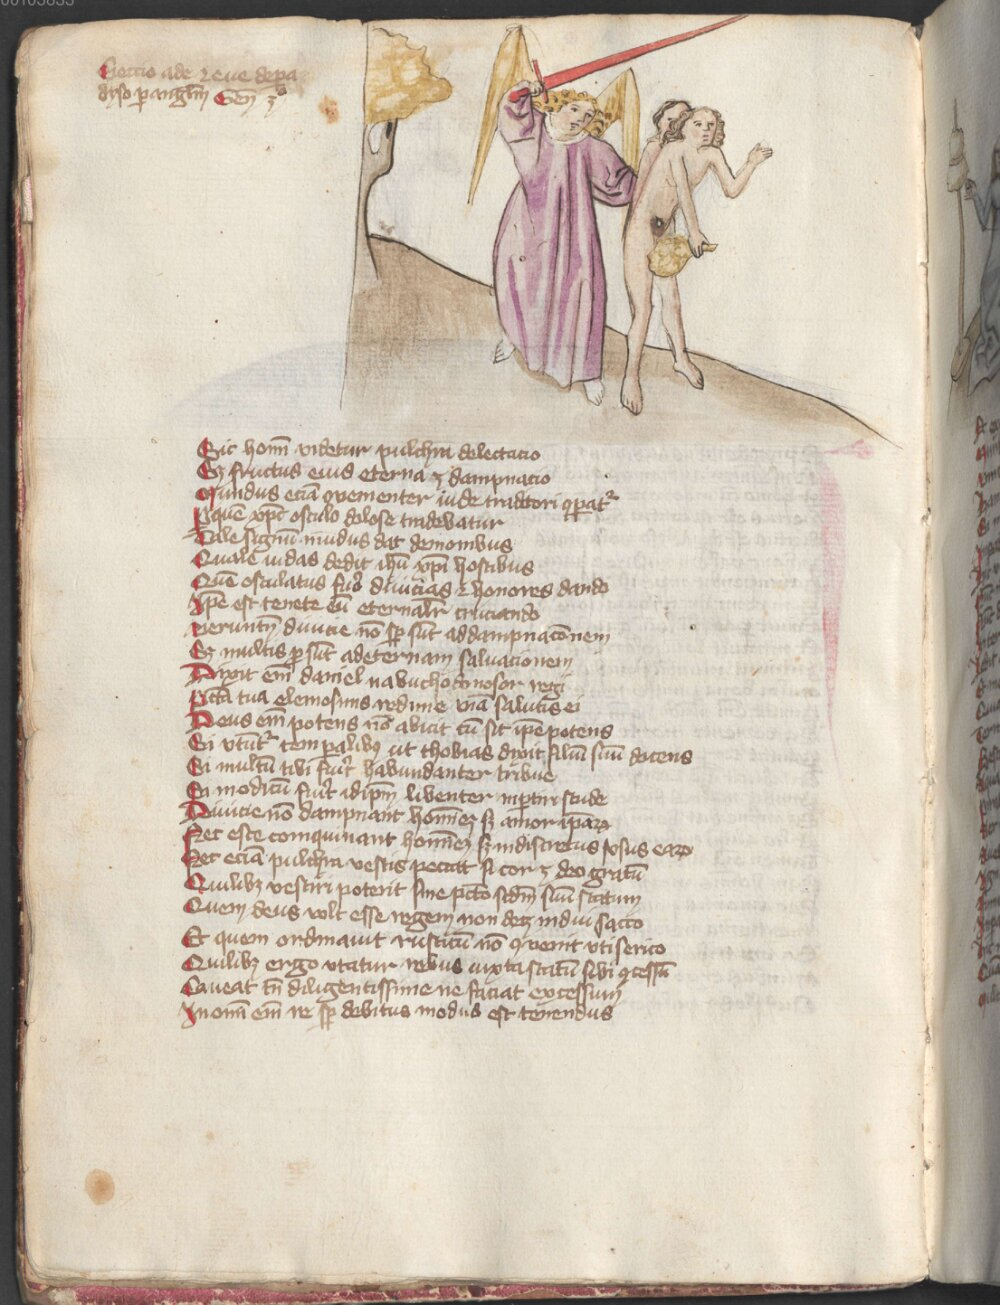 00103855
Eiectio ade et eue de pa
dyso per anglm Gen 3o
Sic homi videtur pulchra delectatio
Sz fructus eius eterna est dampnacio
Mundus eciam convenienter iude traditori comparatur
Per quem xpc osculo dolose tradebatur
Tale signum mundus dat demonibus
Quale iudas dedit ihu xpi hostibus
Quem osculatus fuero diuicias et honores dando
Ipse est tenete eum eternaliter cruciando
Veruntamen diuicie non semper sunt ad dampnaconem
Sz multis prosunt ad eternam saluacionem
Dixit enim daniel nabuchodonosor regi
Peccata tua elemosinis redime viam salutis ei
Deus enim potens non abicit cum sit ipse potens
Si vtuntur temporalibus ut thobias dixit filium suum docens
Si multum tibi fuerit habundanter tribue
Si modicum fuerit id ipsum libenter impertiri stude
Diuicie non dampnant hominem sz amor ipsarum
Nec esce coinquinant hominem sz indiscretus vsus earum
Nec eciam pulchra vestis peccat si cor est deo gratum
Quilibz vestiri poterit sine peccato secundum suum statum
Quem deus volt esse regem non debz indui sacco
Et quem ordinauit rusticum non conuenit vti serico
Quilibz ergo vtatur rebus iuxta statum sibi concessum
Caueat tamen diligentissime ne faciat excessum
In omni enim re semper debitus modus est tenendus